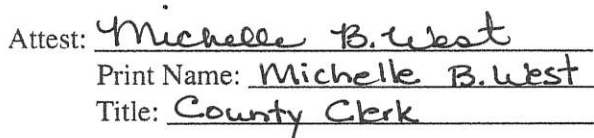 Attest: Michelle B. West
Print Name: Michelle B. West
Title: County Clerk